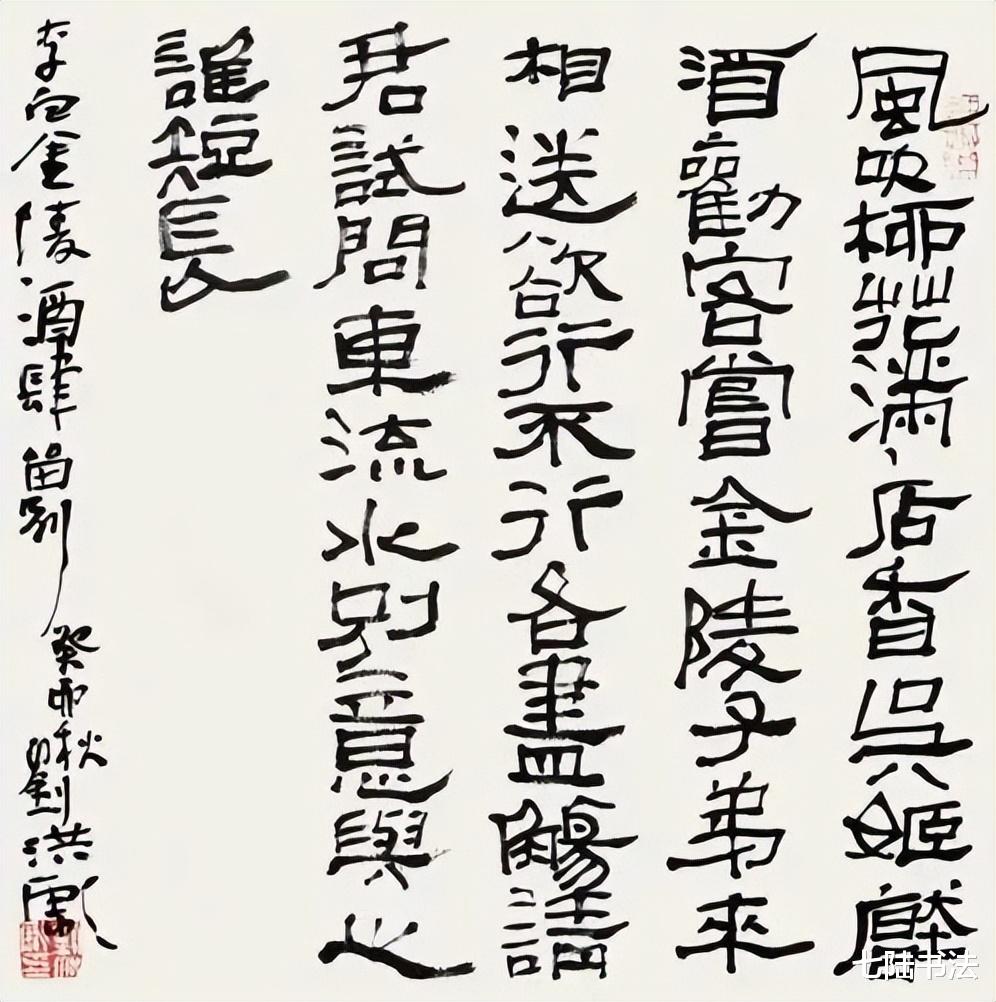 風吹柳花滿店香吳姬壓
酒勸客嘗金陵子弟來
相送欲行不行各盡觴請
君試問東流水別意與之
誰短長
李白金陵酒肆留別 癸酉秋劉洪彪
七陆书法